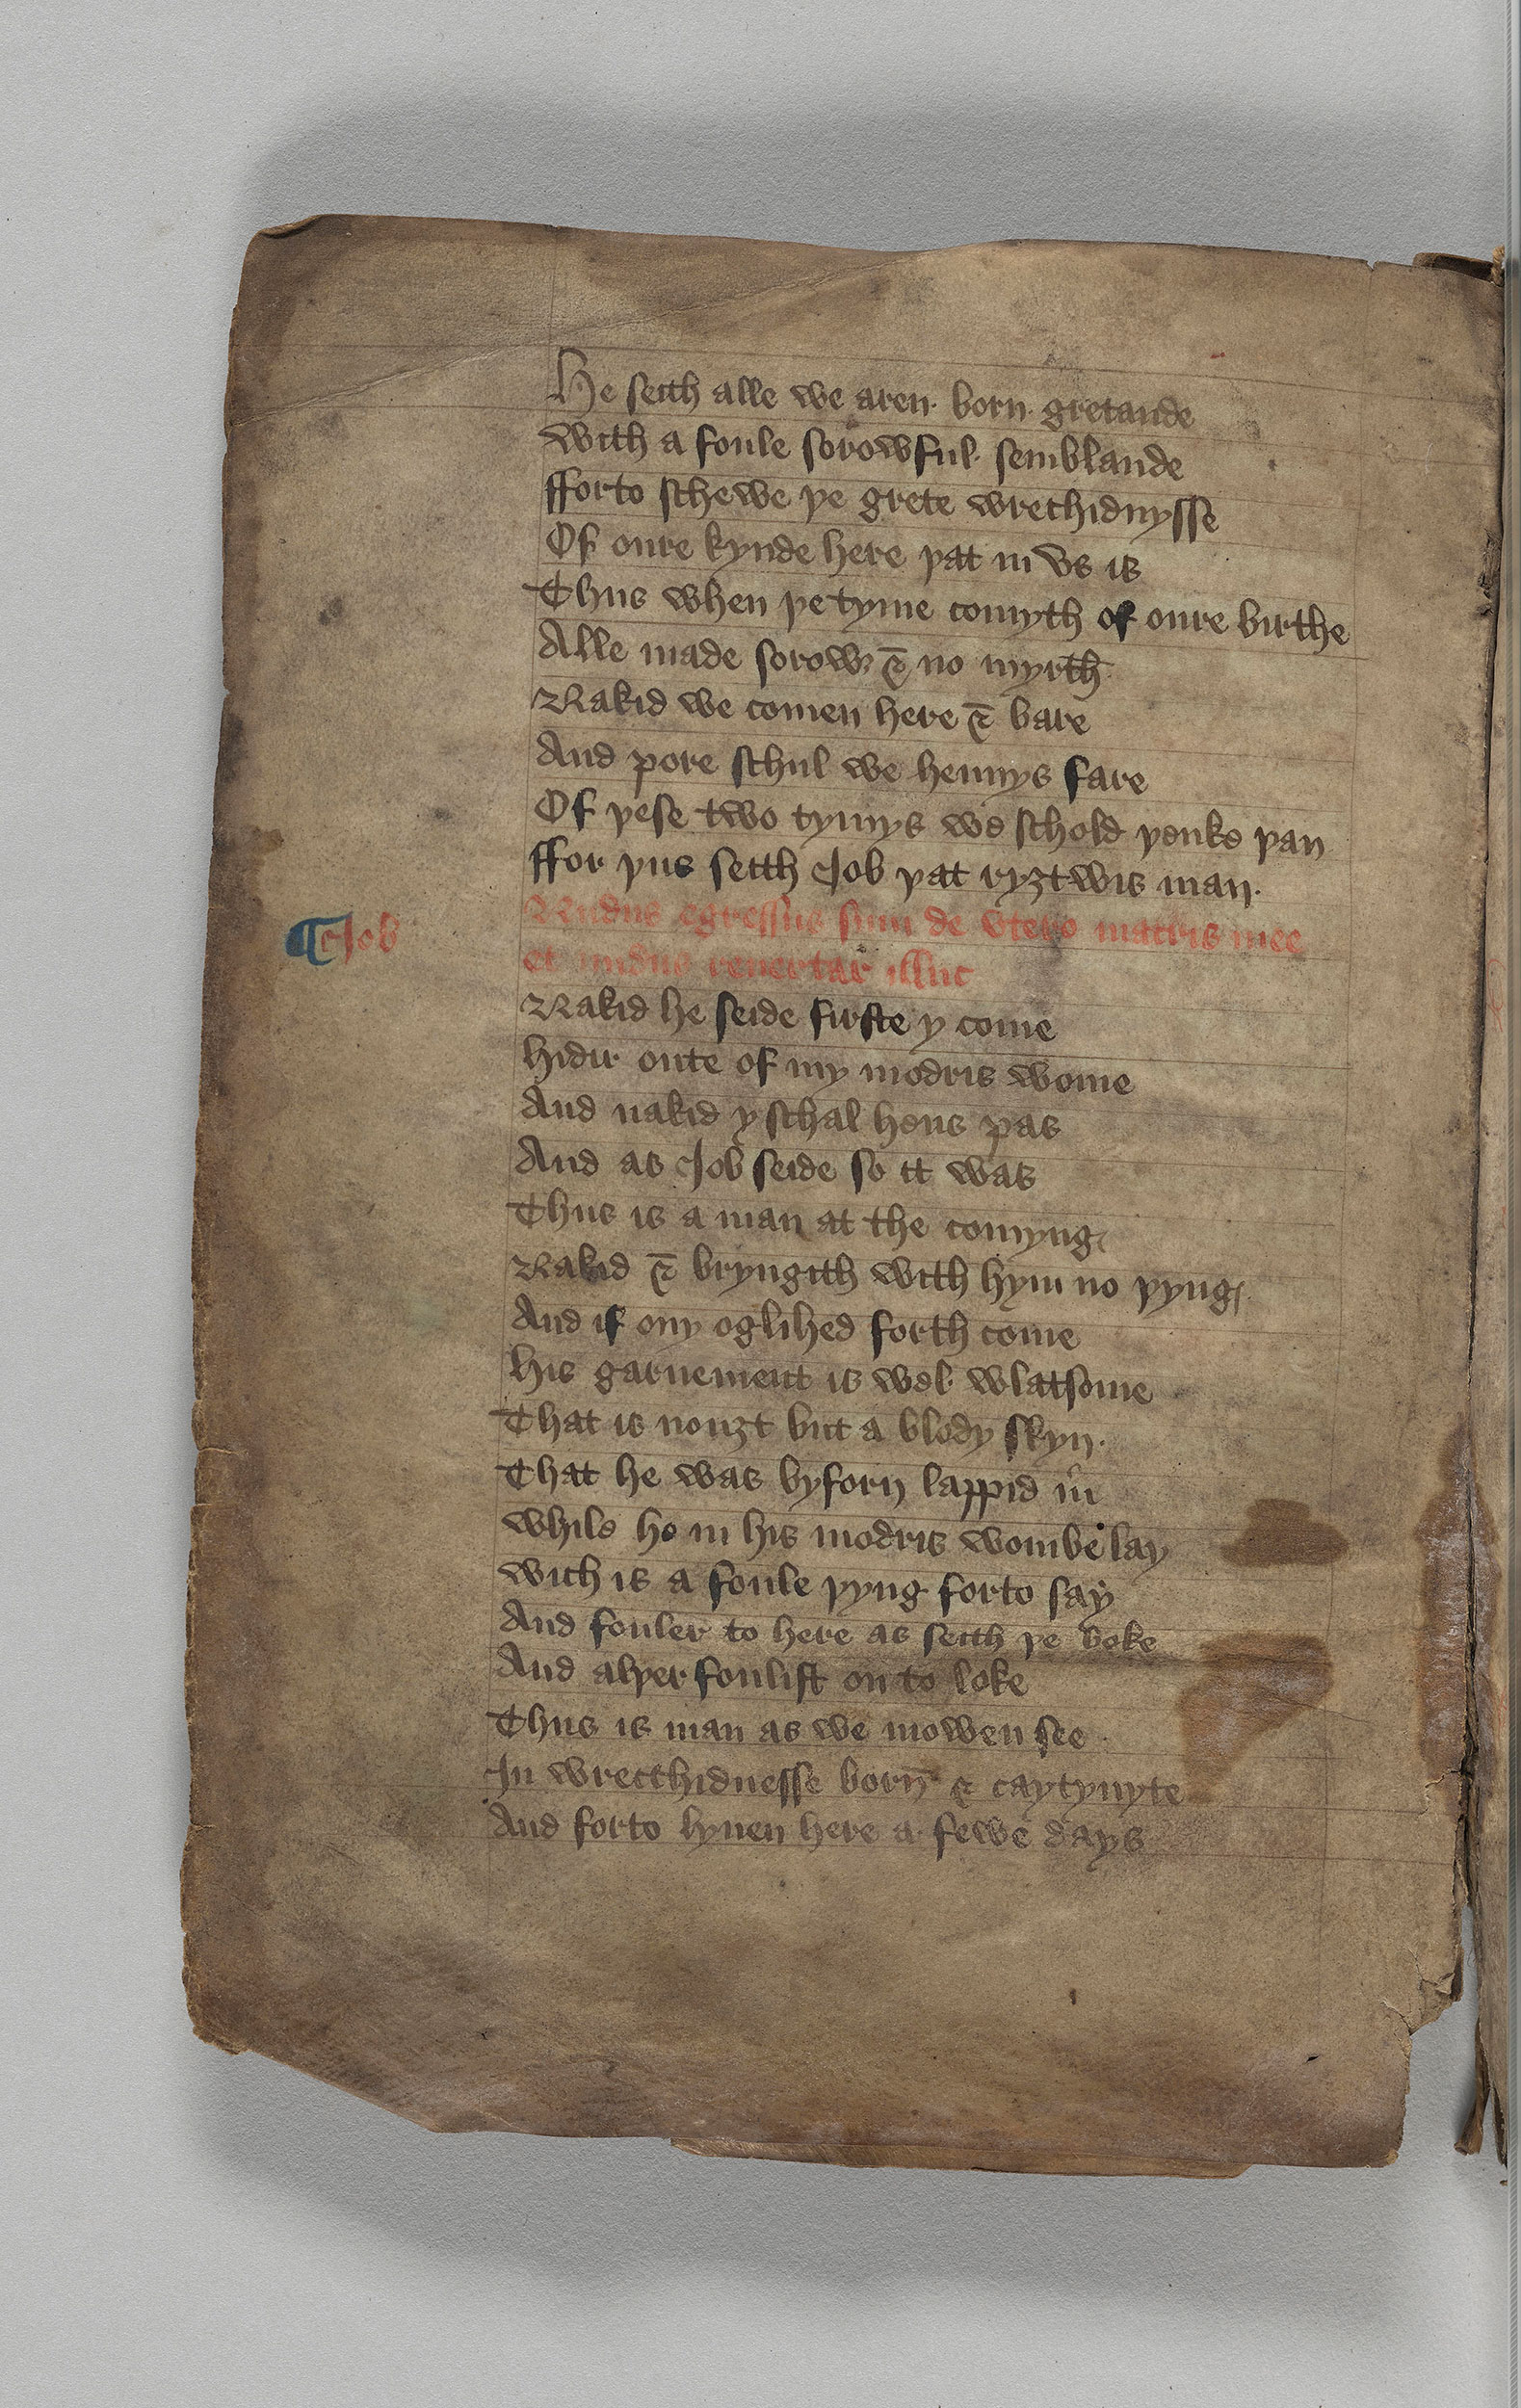 He seith alle we aren born gretande
With a foule sorowful semblande
fforto schewe þe grete wrechidnysse
Of oure kynde here þat in vs is
Thus when þe tyme comyth of oure birthe
Alle made sorow & no myrth
Nakid we comen here & bare
And pore schul we hennys fare
Of þese two tymys we schold þenke þan
ffor þus seith Job þat ryȝtwis man.
¶ Job
Nudus egressus sum de vtero matris mee
et nudus reuertar illuc
Nakid he seide firste y come
hidir oute of my modris wome
And nakid y schal hens pas
And as Job seide so it was
Thus is a man at the comyng
Nakid & bryngith with hym no þyng
And if ony oglihed forth come
his garnement is wel wlatsome
That is nouȝt but a blody skyn.
That he was byforn lappid in
while he in his modris wombe lay
wich is a foule þyng forto say
And fouler to here as seith þe boke
And alþer foulist on to loke
Thus is man as we mowen see
In wrecchidnesse born & caytyuyte
And forto lyuen here a fewe days